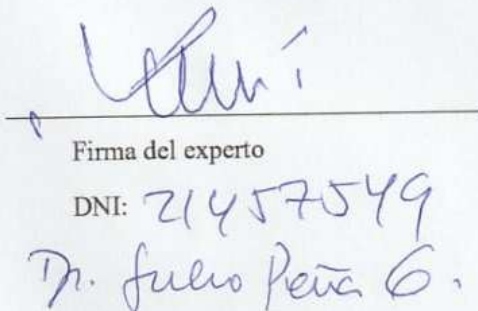 Firma del experto
DNI: 21457549
Dr. Julio Peña G.